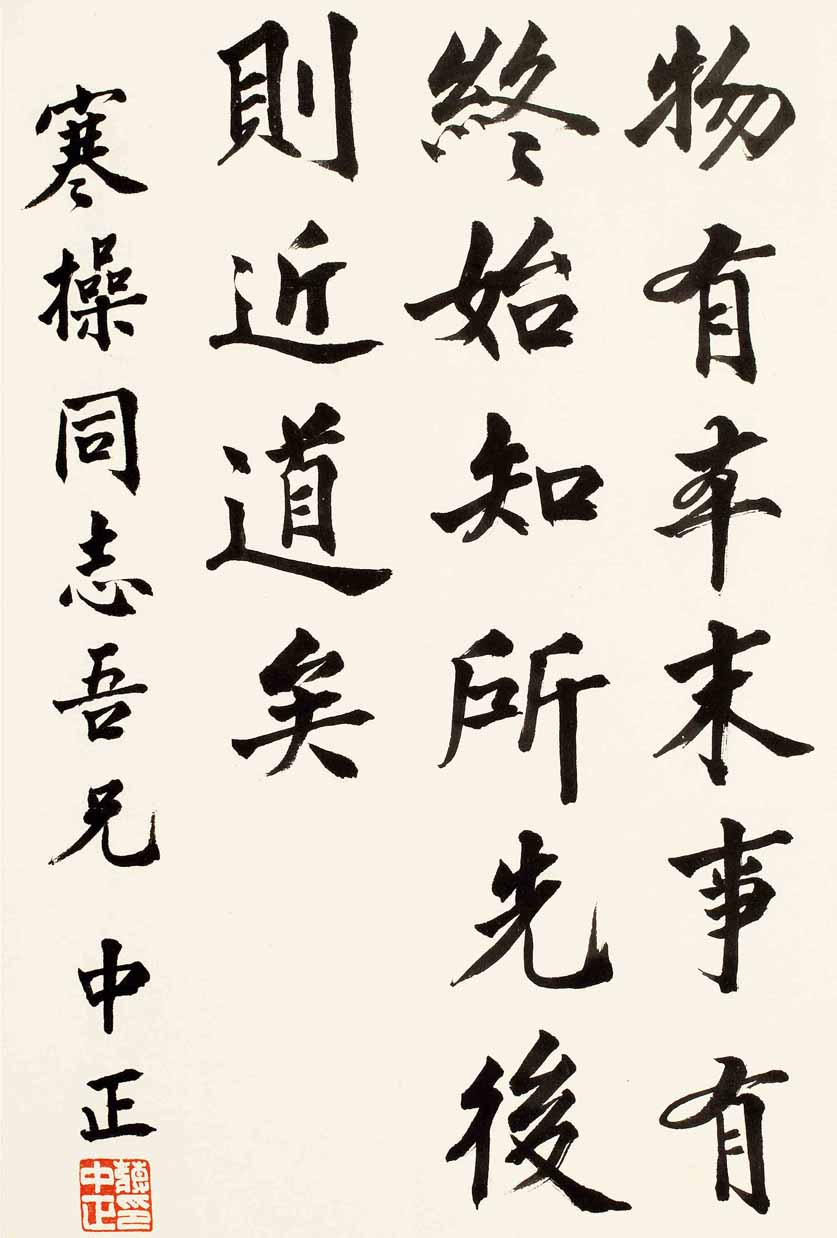 物有本末事有
終始知所先後
則近道矣
寒操同志吾兄 中正
蔣中正印